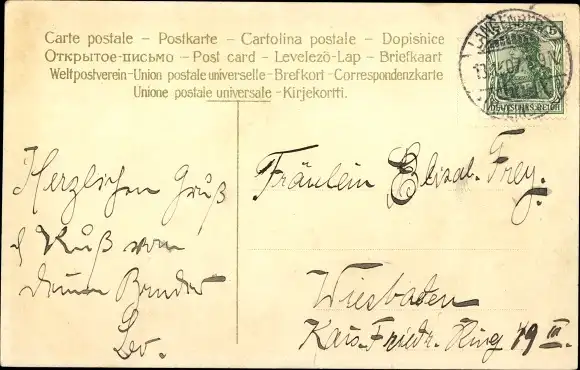 Carte postale – Postkarte – Cartolina postale – Dopisnice
Открытое-письмо – Post card – Levelezö-Lap – Briefkaart
Weltpostverein-Union postale universelle-Brefkort-Correspondenzkarte
Unione postale universale -Kirjekortti.
DEUTSCHES REICH
Herzlichen Gruß
& Kuß von
deinem Bruder
Leo.
Fräulein Elisab. Frey.
Wiesbaden
Kais. Friedr. Ring 19 III.